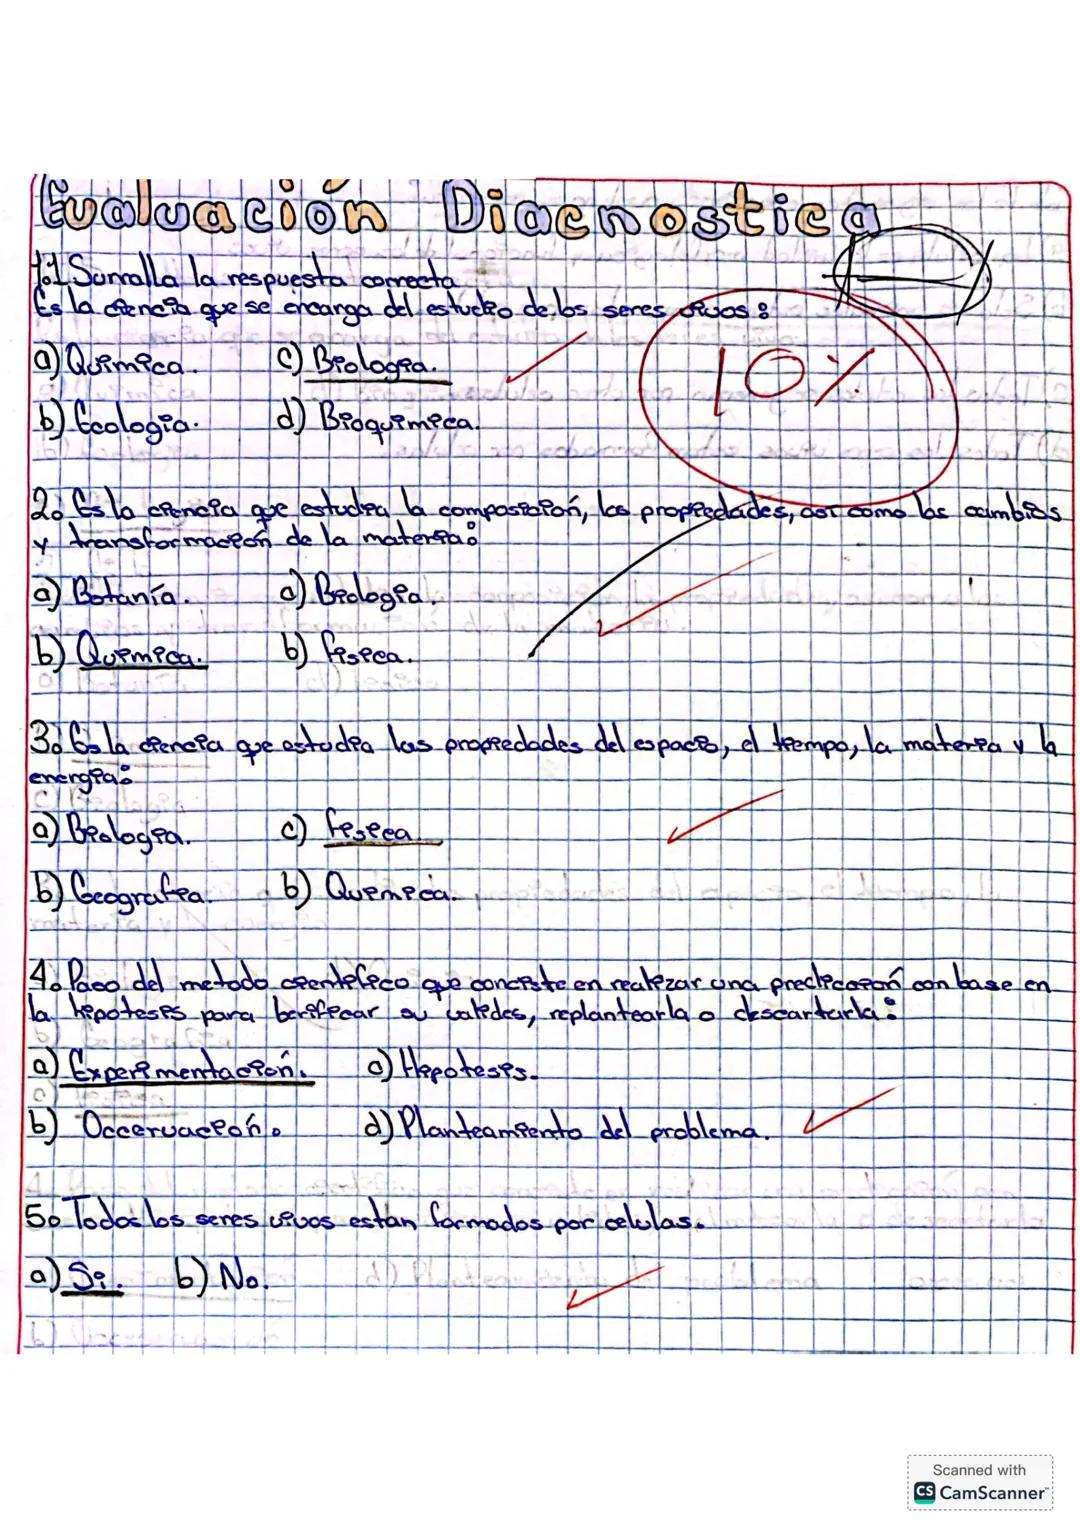 Evaluación Diacnostica
1.1 Surralla la respuesta correcta
Es la ciencia que se encarga del estudio de los seres vivos:
10%
a) Química. c) Biologia.
b) Ecologia. d) Bioquimica.
2. Es la ciencia que estudia la composición, las propiedades, asi como los cambios
y transformación de la materia:
a) Botanía. c) Biologia.
b) Quimica. b) fisica.
3. Es la ciencia que estudia las propiedades del espacio, el tiempo, la materia y la
energia:
a) Biologia. c) fisica.
b) Geografia. b) Quimica.
4. Paso del metodo cientifico que conciste en realizar una predicción con base en
la hipotesis para berificar su valides, replantearla o descartarla:
a) Experimentación. c) Hipotesis.
b) Occervación. d) Planteamiento del problema.
5. Todos los seres vivos estan formados por celulas.
a) Si. b) No.
Scanned with
CS CamScanner